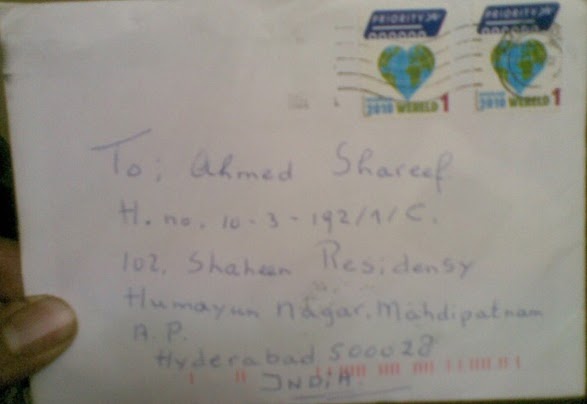 PRIORITY PRIORITY
2010 WERELD 1 2010 WERELD 1
To; Ahmed Shareef
H. no. 10-3-192/1/C.
102, Shaheen Residensy
Humayun Nagar, Mahdipatnam
A.P.
Hyderabad 500028
INDIA.